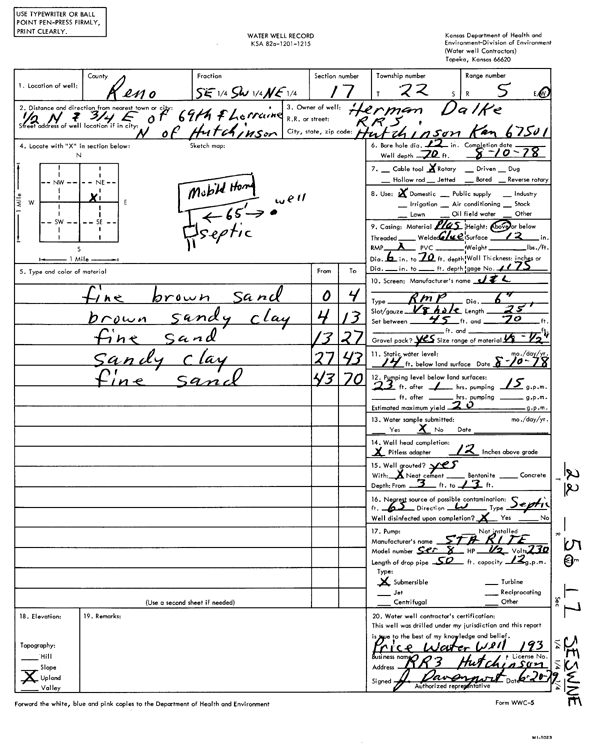 USE TYPEWRITER OR BALL
POINT PEN-PRESS FIRMLY,
PRINT CLEARLY.
WATER WELL RECORD
KSA 82a-1201-1215
Kansas Department of Health and
Environment-Division of Environment
(Water well Contractors)
Topeka, Kansas 66620
1. Location of well: County Reno Fraction SE 1/4 SW 1/4 NE 1/4 Section number 17 Township number T 22 S Range number R 5 E/W
2. Distance and direction from nearest town or city: 1/2 N & 3/4 E of 69th & Lorraine
Street address of well location if in city: N of Hutchinson
3. Owner of well: Herman Dalke
R.R. or street: RR 5
City, state, zip code: Hutchinson Kan 67501
4. Locate with "X" in section below: Sketch map:
N
NW NE
W X E
SW SE
S
1 Mile
1 Mile
Mobile Home
65'
well
septic
6. Bore hole dia. 12 in. Completion date
Well depth 70 ft. 8-10-78
7. Cable tool X Rotary Driven Dug
Hollow rod Jetted Bored Reverse rotary
8. Use: X Domestic Public supply Industry
Irrigation Air conditioning Stock
Lawn Oil field water Other
9. Casing: Material Plas Height: Above or below
Threaded Welded Glue Surface 12 in.
RMP X PVC Weight lbs./ft.
Dia. 6 in. to 70 ft. depth Wall Thickness: inches or
Dia. in. to ft. depth gage No. .1175
10. Screen: Manufacturer's name J&L
Type RMP Dia. 6"
Slot/gauze 1/8 hole Length 25'
Set between 45 ft. and 70 ft.
ft. and ft.
Gravel pack? yes Size range of material 1/8 - 1/2"
5. Type and color of material From To
fine brown sand 0 4
brown sandy clay 4 13
fine sand 13 27
sandy clay 27 43
fine sand 43 70
(Use a second sheet if needed)
11. Static water level: mo./day/yr.
14 ft. below land surface Date 8-10-78
12. Pumping level below land surfaces:
23 ft. after 1 hrs. pumping 15 g.p.m.
ft. after hrs. pumping g.p.m.
Estimated maximum yield 20 g.p.m.
13. Water sample submitted: mo./day/yr.
Yes X No Date
14. Well head completion:
X Pitless adapter 12 Inches above grade
15. Well grouted? yes
With: X Neat cement Bentonite Concrete
Depth: From 3 ft. to 13 ft.
16. Nearest source of possible contamination:
ft. 65 Direction W Type Septic
Well disinfected upon completion? X Yes No
17. Pump: Not installed
Manufacturer's name STA RITE
Model number Ser 8 HP 1/2 Volts 230
Length of drop pipe 50 ft. capacity 12 g.p.m.
Type:
X Submersible Turbine
Jet Reciprocating
Centrifugal Other
18. Elevation:
Topography:
Hill
Slope
X Upland
Valley
19. Remarks:
20. Water well contractor's certification:
This well was drilled under my jurisdiction and this report
is true to the best of my knowledge and belief.
Price Water Well 193
Business name License No.
Address RR3 Hutchinson
Signed J. Davenport Date 6-20-79
Authorized representative
Forward the white, blue and pink copies to the Department of Health and Environment
Form WWC-5
T 22 - R 5 E W Sec 17 1/4 1/4 1/4 SESWNE